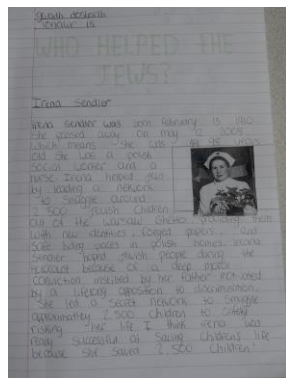 WHO HELPED THE
JEWS?
Irena Sendler
Irena Sendler was born February 15 1910
She passed away on may 12 2008
which means she was 98 years
old She was a polish
Social worker and a
nurse. Irena helped
by leading a network
to smuggle around
2,500 Jewish Children
out of the Warsaw Ghetto, providing them
with new identities, forged papers, and
safe hiding places in polish homes. Irena
Sendler helped Jewish people during the
Holocaust because of a deep moral
conviction by her father and
by a lifelong opposition to discrimination.
She led a secret network to smuggle
approximatley 2,500 Children to
risking her life. I think was
really successful at Saving Children's life
because She saved 2,500 Children!